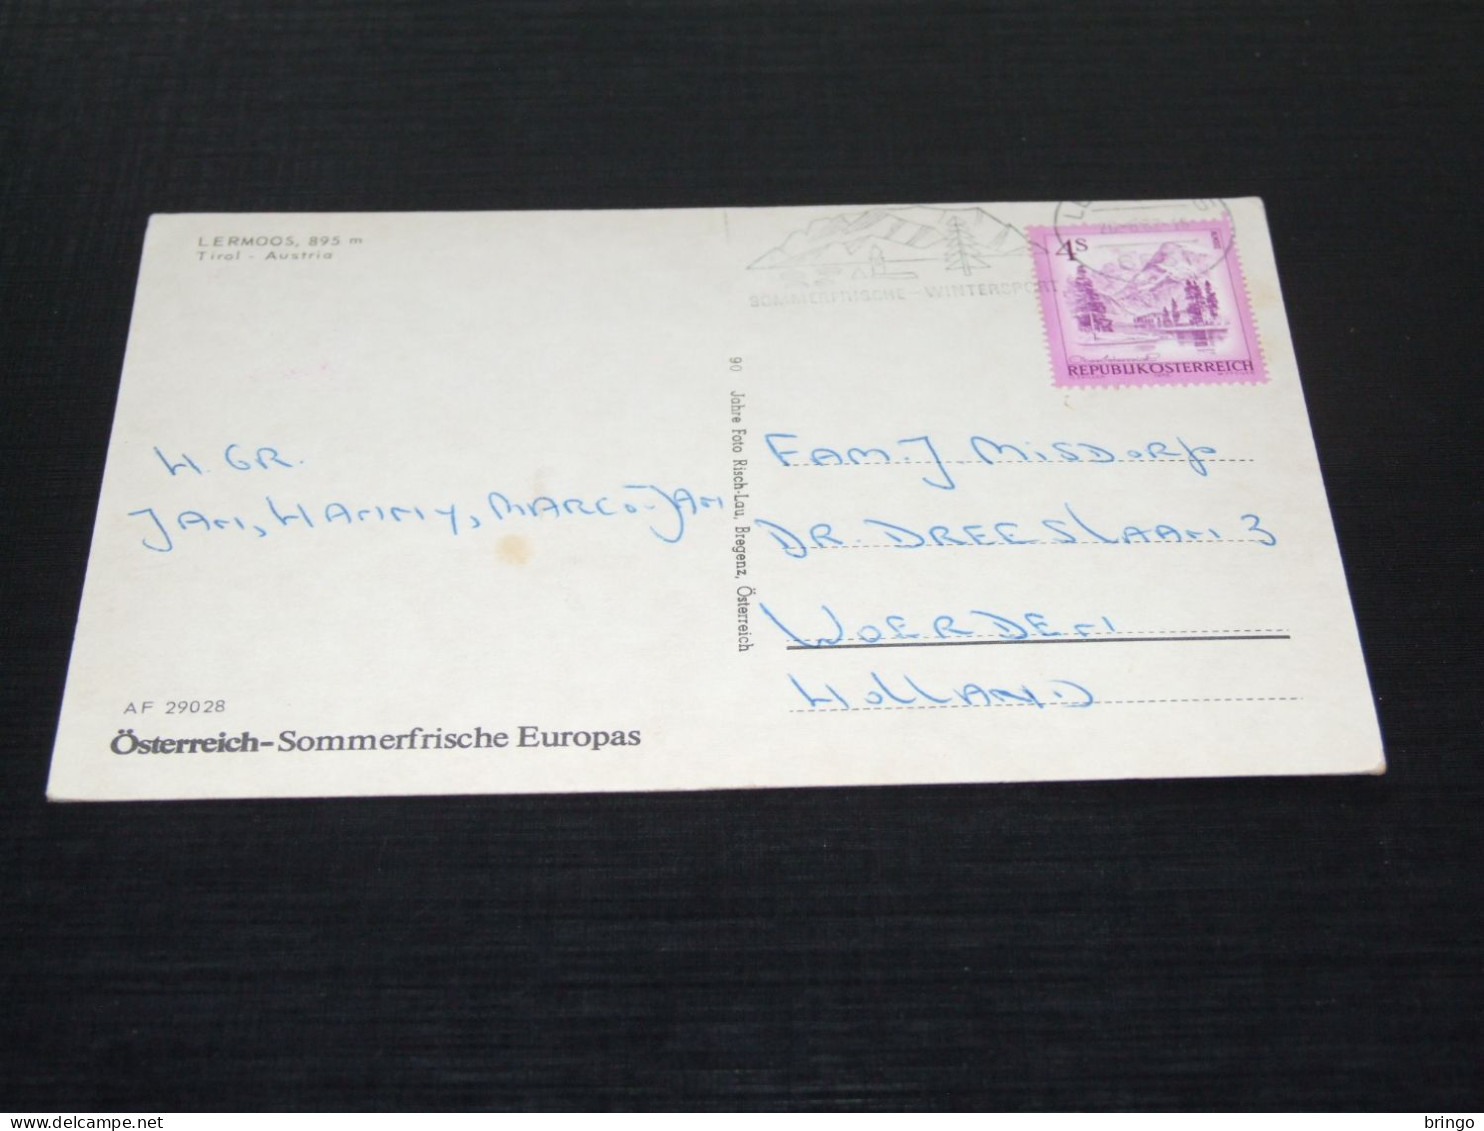 LERMOOS, 895 m
Tirol - Austria
SOMMERFRISCHE - WINTERSPORT
4S
REPUBLIK ÖSTERREICH
90 Jahre Foto Risch-Lau, Bregenz, Österreich
H. GR.
JAN, HANNY, MARCO-JAN
FAM. J. MISDORP
DR. DREESLAAN 3
WOERDEN
HOLLAND
AF 29028
Österreich-Sommerfrische Europas
delcampe.net
bringo